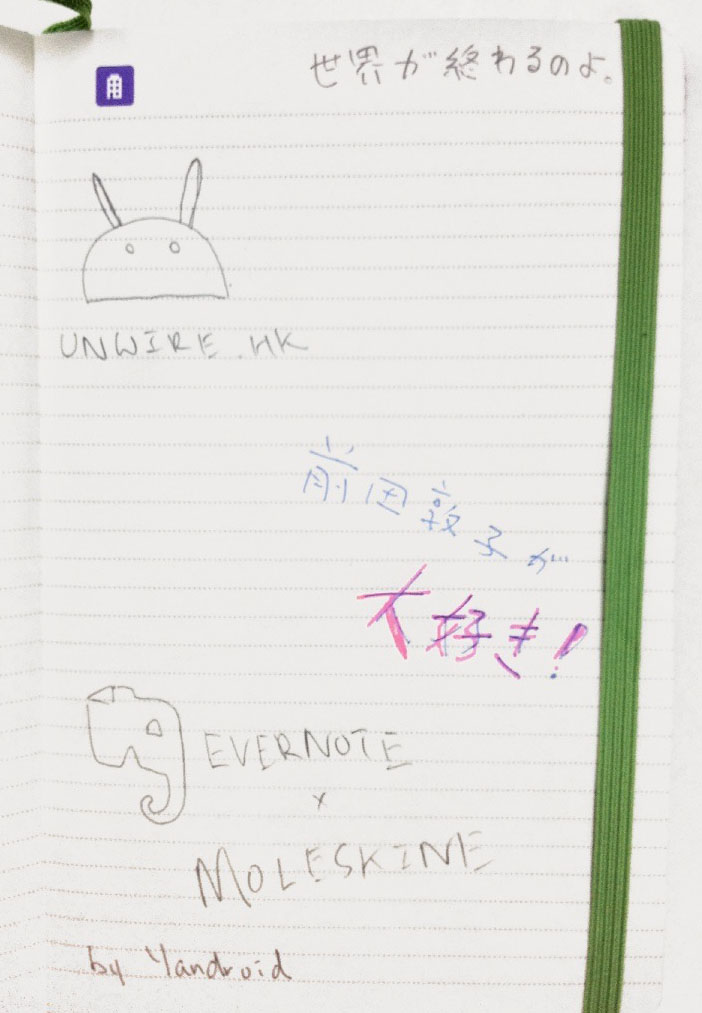 世界が終わるのよ。
UNWIRE.HK
前田敦子が…
大好き!
EVERNOTE
x
MOLESKINE
by Yandroid